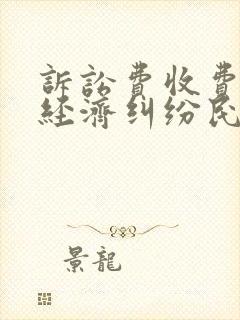 訴訟費收費
經濟糾紛民
景龍